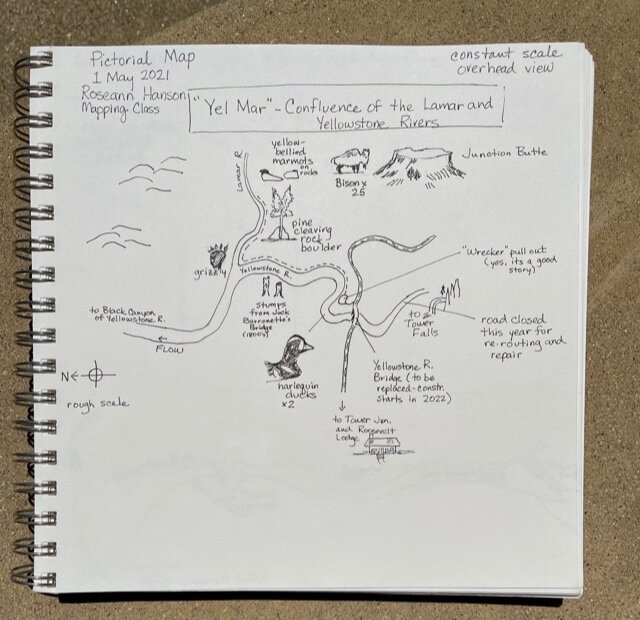 Pictorial Map
1 May 2021
Roseann Hanson
Mapping Class
constant scale
overhead view
"Yel Mar" - Confluence of the Lamar and
Yellowstone Rivers
Lamar R.
yellow-
bellied
marmots
on
rocks
Bison x
25
Junction Butte
pine
cleaving
rock
boulder
grizzly
Yellowstone R.
"Wrecker" pull out
(yes, its a good
story)
Stumps
from Jack
Barronette's
Bridge
(1800's)
to Black Canyon
of Yellowstone R.
FLOW
to
Tower
Falls
road closed
this year for
re-routing and
repair
N
rough scale
harlequin
ducks
x2
Yellowstone R.
Bridge (to be
replaced-constr.
starts in 2022)
to Tower Jcn.
and Roosevelt
Lodge